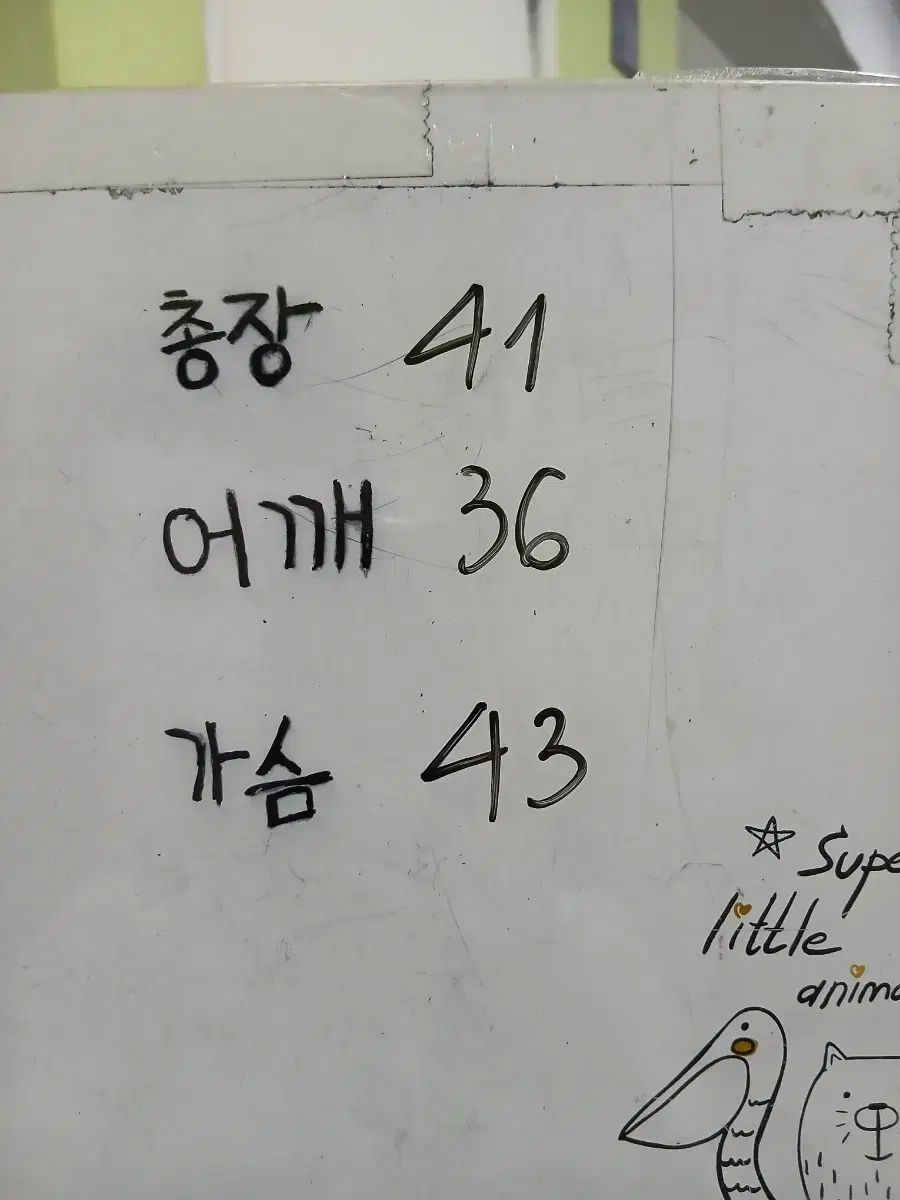 총장 41
어깨 36
가슴 43
☆ Supe
little
anima